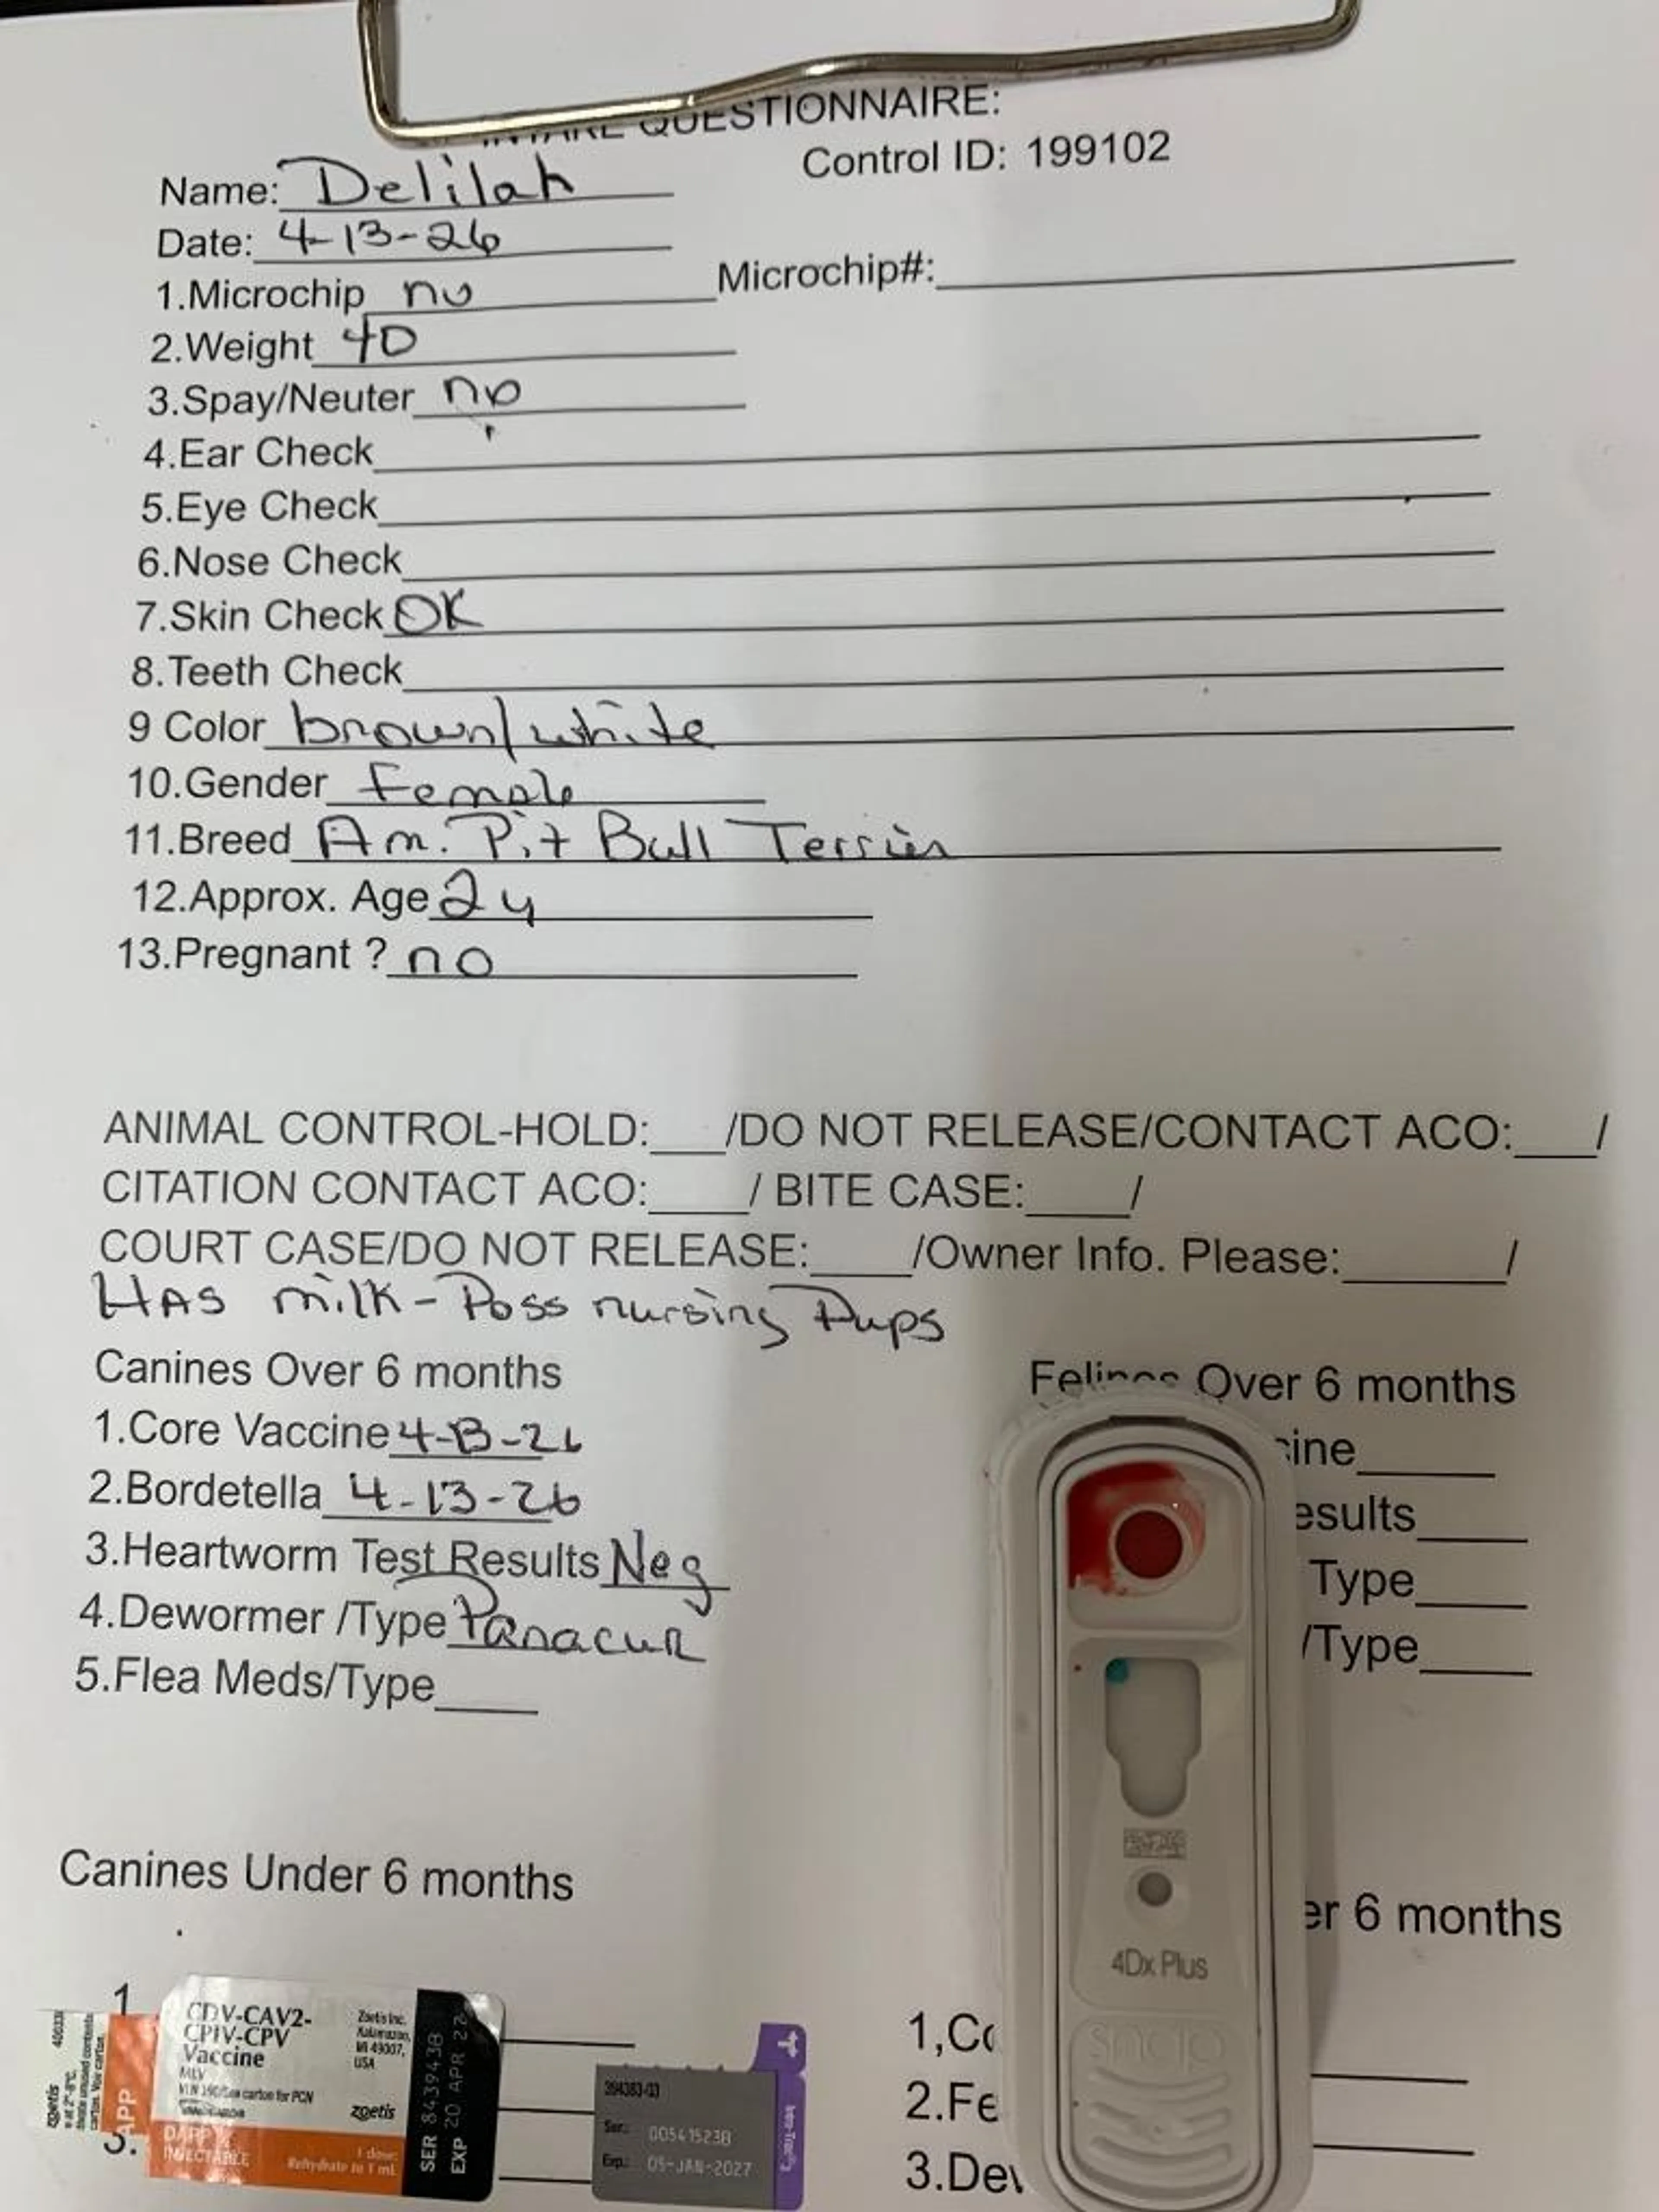 INTAKE QUESTIONNAIRE:
Control ID: 199102
Name: Delilah
Date: 4-13-26
1.Microchip no Microchip#:
2.Weight 40
3.Spay/Neuter no
4.Ear Check
5.Eye Check
6.Nose Check
7.Skin Check OK
8.Teeth Check
9 Color brown/white
10.Gender Female
11.Breed Am. Pit Bull Terrier
12.Approx. Age 2y
13.Pregnant ? no
ANIMAL CONTROL-HOLD:___/DO NOT RELEASE/CONTACT ACO:___/
CITATION CONTACT ACO:____/ BITE CASE:____/
COURT CASE/DO NOT RELEASE:____/Owner Info. Please:______/
HAS milk - Poss nursing Pups
Canines Over 6 months
1.Core Vaccine 4-13-26
2.Bordetella 4-13-26
3.Heartworm Test Results Neg
4.Dewormer /Type Panacur
5.Flea Meds/Type
Felines Over 6 months
cine
esults
Type
/Type
4Dx Plus
snap
Canines Under 6 months
er 6 months
1
3.
CDV-CAV2-
CPIV-CPV
Vaccine
MLV
Zoetis Inc.
Kalamazoo,
MI 49007,
USA
zoetis
DAPP
INJECTABLE
1 dose
Rehydrate to 1 mL
SER 843943B
EXP 20 APR 27
394383-03
Ser.: 00541523B
Exp.: 05-JAN-2027
1,Co
2.Fe
3.Dev